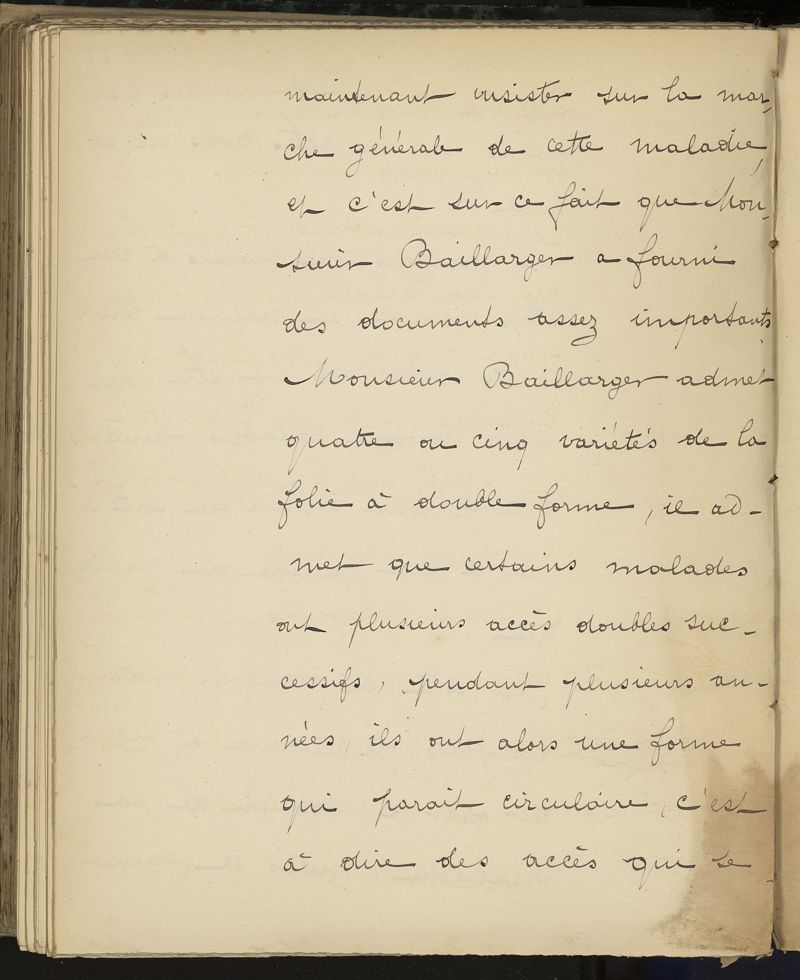 maintenant insister sur la mar-
che générale de cette maladie,
et c'est sur ce fait que Mon-
sieur Baillarger a fourni
des documents assez importants.
Monsieur Baillarger admet
quatre ou cinq variétés de la
folie à double forme, il ad-
met que certains malades
ont plusieurs accès doubles suc-
cessifs, pendant plusieurs an-
nées, ils ont alors une forme
qui parait circulaire, c'est
à dire des accès qui se